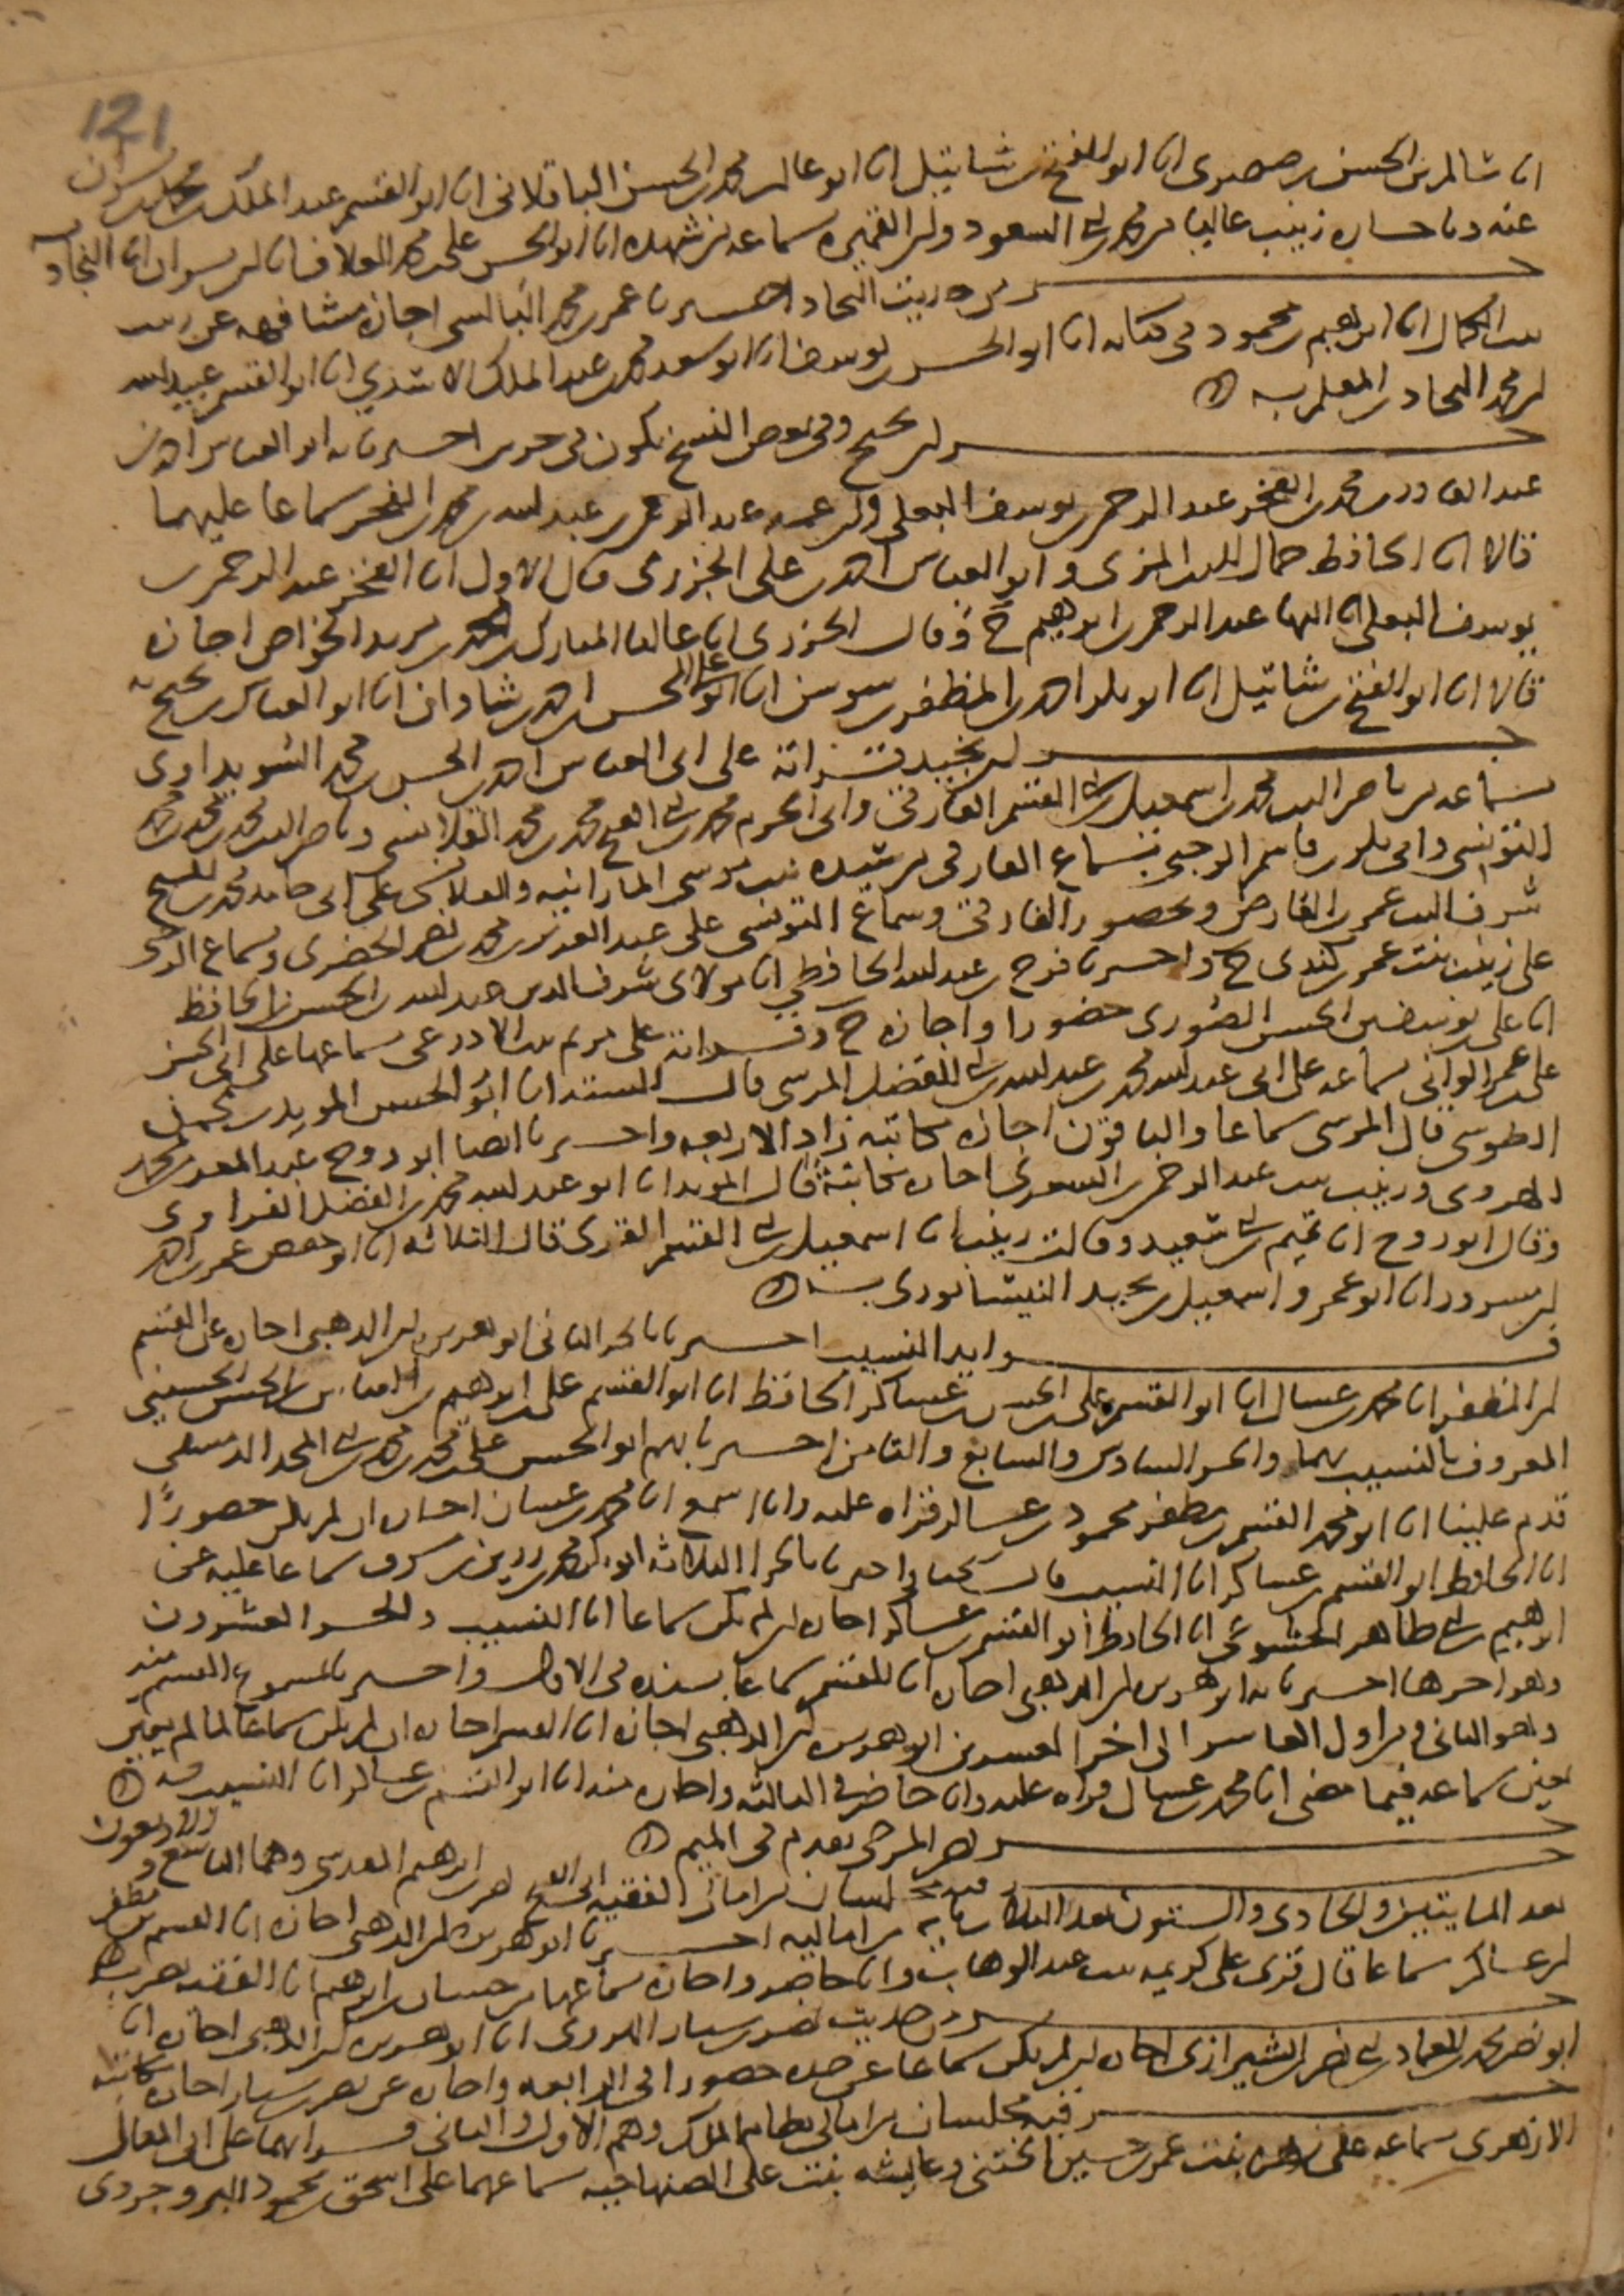 121
انا سالم بن الحسن بن صصرى انا ابو الفتح بن شاتيل انا ابو غالب محمد بن الحسن الباقلاني انا ابو القسم عبد الملك بن محمد بن بشران
عنه ح وباجازة زينب عاليا من محمد بن السعود ولى القميرة سماعه من شهدة انا ابو الحسن على بن محمد العلاف انا ابن بشران انا النجاد
من حديث النجاد اخبرنا عمر بن محمد البالسي اجازة مشافهة عن زينب
بنت الكمال انا ابراهيم بن محمود في كتابه انا ابو الحسين يوسف انا ابو سعد محمد بن عبد الملك الاسدي انا ابو القسم عبيد الله
بن محمد النجاد المعلم به
بن نجيح وفي بعض النسخ يكون في جزءين اخبرنا به ابو العباس احمد بن
عبد القادر بن محمد بن الفخر عبد الرحمن بن يوسف البعلي وابن عمه عبد الرحمن بن عبد الله بن محمد بن الفخر سماعا عليهما
قالا انا الحافظ جمال الدين المزي وابو العباس احمد بن على الجزري قال الاول انا الفخر عبد الرحمن بن
يوسف البعلي انا البها عبد الرحمن بن ابرهيم ح وقال الجزري انا عاليا المبارك بن محمد بن مزيد الخواص اجازة
قالا انا ابو الفتح بن شاتيل انا ابو بكر احمد بن المظفر بن سوسن انا ابو على الحسن بن احمد بن شاذان انا ابو العباس بن نجيح به
بن نجيد قراته على ابي العباس احمد بن الحسن بن محمد السويداوي
بسماعه من ناصر الدين محمد بن اسمعيل بن القسم الفارقي وابي الحرم محمد بن محمد بن محمد القلانسي وناصر الدين محمد بن محمد بن محمد
التونسي وابي بكر بن قاسم الرحبي بسماع الفارقي من سيدة بنت موسى المارانية والقلانسي على ابي حامد محمد بن الشيخ
شرف الدين عمر بن الفارض وبحضور الفارقي وسماع التونسي على عبد العزيز بن محمد بن نصر الحضري وسماع الرحبي
على زينب بنت عمر بن كندي ح واخبرنا فرج بن عبد الله الحافظي انا مولاي شرف الدين عبد الله بن الحسن الحافظ
انا على بن يوسف بن الحسن الصوري حضورا واجازة ح وقراته على مريم بنت الاذرعي سماعها على ابي الحسن
على بن عمر الواني سماعه على ابي عبد الله محمد بن عبد الله بن الفضل المرسي قال الستة انا ابو الحسن المويد بن محمد بن
الطوسي قال المرسي سماعا والباقون اجازة مكاتبة زاد الاربعة واخبرنا ايضا ابو روح عبد المعز بن محمد
الهروي وزينب بنت عبد الرحمن الشعري اجازة مكاتبة قال المويد انا ابو عبد الله محمد بن الفضل الفراوي
وقال ابو روح انا تميم بن سعيد وقالت زينب انا اسمعيل بن القسم القاري قال الثلاثة انا ابو حفص عمر بن احمد
بن مسرور انا ابو عمرو اسمعيل بن نجيد النيسابوري به
فوايد النسيب اخبرنا بالجز الثاني ابو هريرة بن الذهبي اجازة عن القسم
بن المظفر انا محمد بن غسان انا ابو القسم على بن الحسن بن عساكر الحافظ انا ابو القسم على بن ابرهيم بن العباس بن الحسن الحسيني
المعروف بالنسيب بهما والجز السادس والسابع والثامن اخبرنا بهم ابو الحسن على بن محمد بن محمد بن المجد الدمشقي
قدم علينا انا ابو محمد القسم بن مظفر بن محمود بن عساكر قراه عليه وانا اسمع انا محمد بن غسان اجازة ان لم يكن حضورا
انا الحافظ ابو القسم بن عساكر انا النسيب قال واخبرنا بالجز الثلاثة ابو بكر محمد بن سماعا عليه عن
ابرهيم بن طاهر الخشوعي انا الحافظ ابو القسم بن عساكر اجازة ان لم يكن سماعا انا النسيب والجز العشرون
وهو اخرها اخبرنا به ابو هريرة بن الذهبي اجازة انا القسم سماعا بسنده في الاول واخبرنا بمسموع القسم منه
وهو الثاني ومن اول العاشر الى اخر العشرين ابو هريرة بن الذهبي اجازة انا القسم اجازة ان لم يكن سماعا لما لم يميز
تعيين سماعه فيما مضى انا محمد بن غسان قراه عليه وانا حاضر في الثالثة واجازة منه انا ابو القسم بن عساكر انا النسيب به
نصر المرجى تقدم في الميم
فيه مجلسان من امالي الفقيه ابي الفتح نصر بن ابرهيم المقدسي وهما التاسع والاربعون
بعد المايتين والحادي والستون بعد الثلاثماية من اماليه اخبرنا ابو هريرة بن الذهبي اجازة انا القسم بن مظفر
بن عساكر سماعا قال قرئ على كريمة بنت عبد الوهاب وانا حاضر واجازة سماعها من حسان بن ابرهيم انا الفقيه نصر به
من حديث نصر بن سيار الهروي انا ابو هريرة بن الذهبي اجازة انا
ابو نصر محمد بن العماد بن نصر الشيرازي اجازة ان لم يكن سماعا عن جده حضورا في الرابعة واجازة عن نصر بن سيار اجازة مكاتبة
فيه مجلسان من امالي نظام الملك وهما الاول والثاني قراتهما على ابي المعالي
الازهري سماعه على زهرة بنت عمر بن حسين الختني وعايشة بنت على الصنهاجية سماعهما على اسحق بن محمود البروجردي